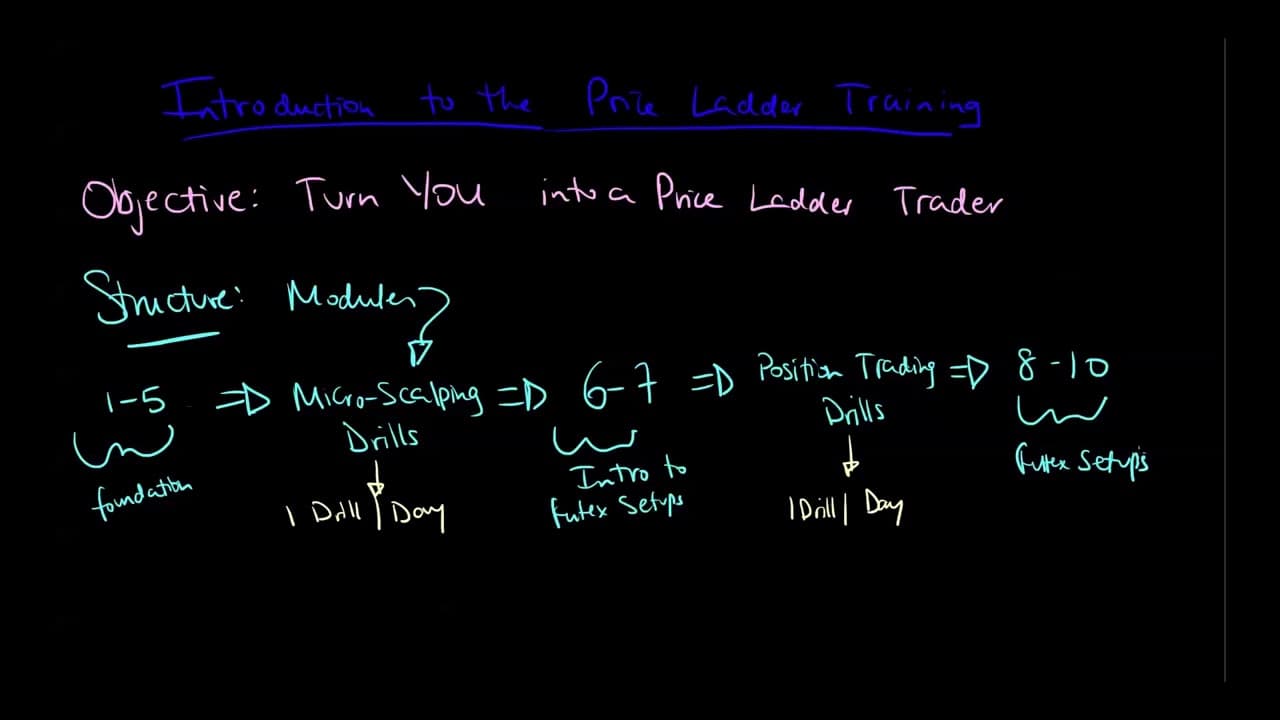 Introduction to the Price Ladder Training
Objective: Turn You into a Price Ladder Trader
Structure: Modules
1-5 => Micro-Scalping => 6-7 => Position Trading => 8-10
Drills Drills
foundation Intro to Futex Setups
1 Drill / Day Futex Setups 1 Drill / Day